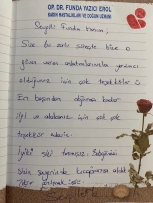 OP. DR. FUNDA YAZICI EROL
KADIN HASTALIKLARI VE DOĞUM UZMANI
Sevgili Funda Hanım,
Size bu zorlu süreçte bize
güven veren yardımcı
olduğunuz için çok teşekkürler
En başından doğuma kadar
ilgi ve alakanız için çok
teşekkür ederiz.
İyiki sizi tanımışız.
Sizin sayenizde kucağımıza aldık